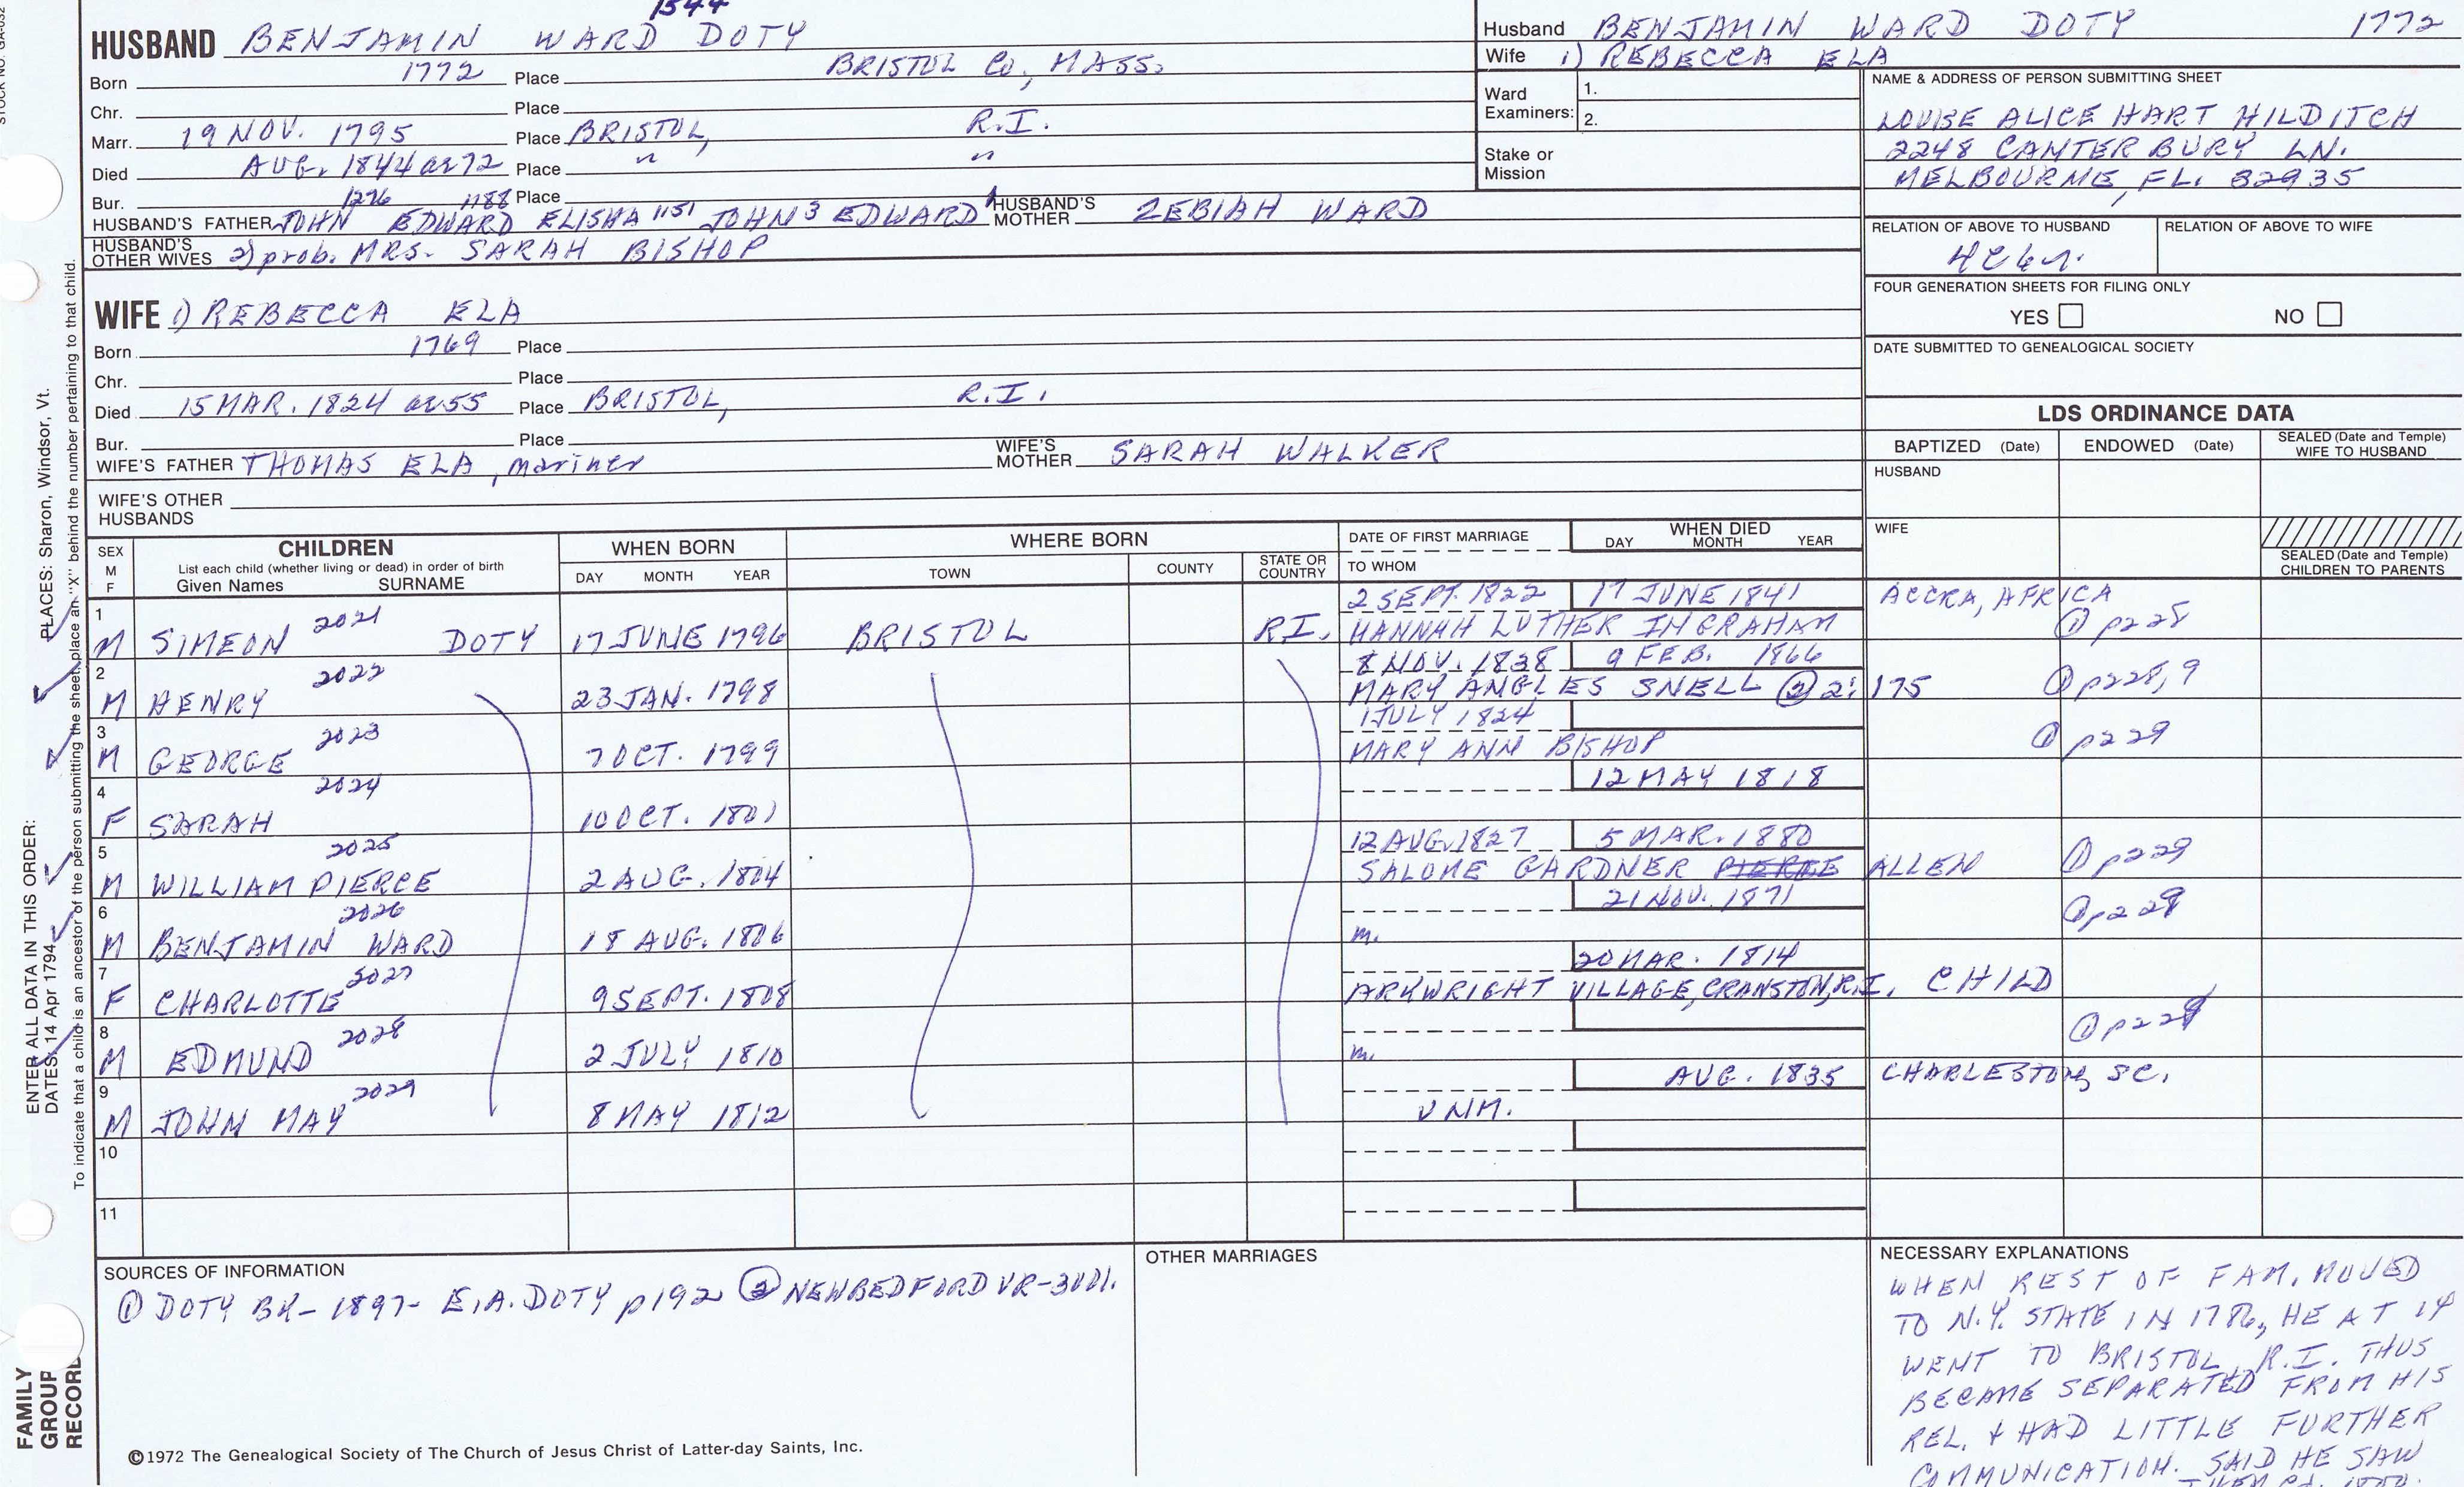 1544
HUSBAND BENJAMIN WARD DOTY
Born 1772 Place BRISTOL Co., MASS.
Chr. Place
Marr. 19 NOV. 1795 Place BRISTOL, R.I.
Died AUG. 1844 ae 72 Place " "
Bur. Place
1276 1188
HUSBAND'S FATHER JOHN EDWARD ELISHA 1151 JOHN 3 EDWARD 1 HUSBAND'S MOTHER ZEBIAH WARD
HUSBAND'S OTHER WIVES 2) prob. MRS. SARAH BISHOP
WIFE 1) REBECCA ELA
Born 1769 Place
Chr. Place
Died 15 MAR. 1824 ae 55 Place BRISTOL, R.I.
Bur. Place
WIFE'S FATHER THOMAS ELA, mariner WIFE'S MOTHER SARAH WALKER
WIFE'S OTHER HUSBANDS
Husband BENJAMIN WARD DOTY 1772
Wife 1) REBECCA ELA
Ward Examiners: 1.
2.
Stake or Mission
NAME & ADDRESS OF PERSON SUBMITTING SHEET
LOUISE ALICE HART HILDITCH
2248 CANTERBURY LN.
MELBOURNE, FL. 32935
RELATION OF ABOVE TO HUSBAND RELATION OF ABOVE TO WIFE
FOUR GENERATION SHEETS FOR FILING ONLY
YES NO
DATE SUBMITTED TO GENEALOGICAL SOCIETY
LDS ORDINANCE DATA
BAPTIZED (Date) ENDOWED (Date) SEALED (Date and Temple) WIFE TO HUSBAND
HUSBAND
WIFE
SEALED (Date and Temple) CHILDREN TO PARENTS
SEX M F CHILDREN List each child (whether living or dead) in order of birth Given Names SURNAME WHEN BORN DAY MONTH YEAR WHERE BORN TOWN COUNTY STATE OR COUNTRY DATE OF FIRST MARRIAGE TO WHOM WHEN DIED DAY MONTH YEAR
1 2 SEPT. 1822 17 JUNE 1841 ACCRA, AFRICA
M SIMEON 2021 DOTY 17 JUNE 1796 BRISTOL R.I. HANNAH LUTHER INGRAHAM ① p228
2 8 NOV. 1838 9 FEB. 1866
M HENRY 2022 23 JAN. 1798 MARY ANGLES SNELL ② 2:175 ① p228,9
3 1 JULY 1824
M GEORGE 2023 7 OCT. 1799 MARY ANN BISHOP ① p229
4 12 MAY 1818
F SARAH 2024 10 OCT. 1801
5 12 AUG. 1827 5 MAR. 1880
M WILLIAM PIERCE 2025 2 AUG. 1804 SALOME GARDNER PIERCE ALLEN ① p229
6 21 NOV. 1871
M BENJAMIN WARD 2026 18 AUG. 1806 m. ① p229
7 20 MAR. 1814
F CHARLOTTE 2027 9 SEPT. 1808 ARKWRIGHT VILLAGE, CRANSTON, R.I. CHILD
8
M EDMUND 2028 2 JULY 1810 m. ① p229
9 AUG. 1835 CHARLESTON, SC.
M JOHN MAY 2029 8 MAY 1812 UNM.
10
11
SOURCES OF INFORMATION
① DOTY BK-1897- E.A. DOTY p192 ② NEWBEDFORD VR-3vol.
OTHER MARRIAGES
NECESSARY EXPLANATIONS
WHEN REST OF FAM. MOVED
TO N.Y. STATE IN 1786, HE AT 14
WENT TO BRISTOL, R.I. THUS
BECAME SEPARATED FROM HIS
REL. & HAD LITTLE FURTHER
COMMUNICATION. SAID HE SAW
©1972 The Genealogical Society of The Church of Jesus Christ of Latter-day Saints, Inc.
FAMILY GROUP RECORD
ENTER ALL DATA IN THIS ORDER:
DATES: 14 Apr 1794
PLACES: Sharon, Windsor, Vt.
To indicate that a child is an ancestor of the person submitting the sheet, place an "X" behind the number pertaining to that child.